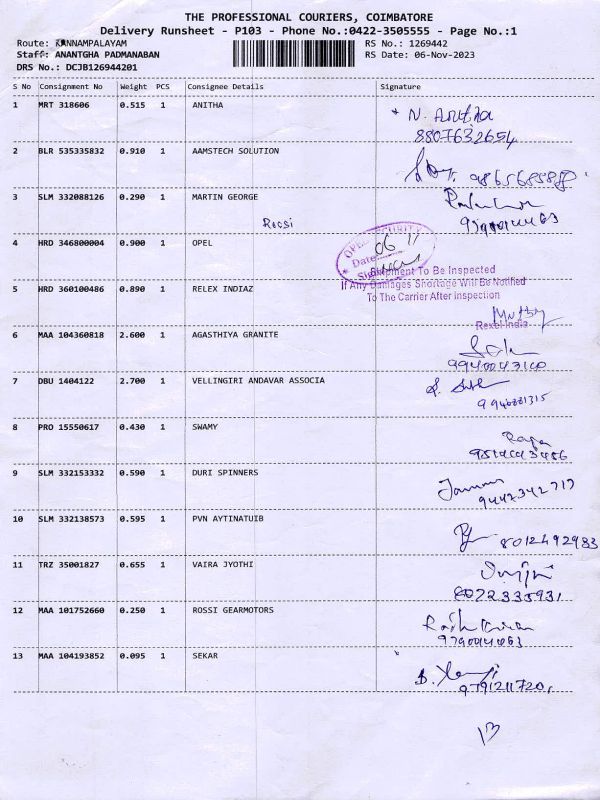 THE PROFESSIONAL COURIERS, COIMBATORE
Delivery Runsheet - P103 - Phone No.:0422-3505555 - Page No.:1
Route: KANNAMPALAYAM RS No.: 1269442
Staff: ANANTGHA PADMANABAN RS Date: 06-Nov-2023
DRS No.: DCJB126944201
S No Consignment No Weight PCS Consignee Details Signature
1 MRT 318606 0.515 1 ANITHA N. Anitha
8807632654
2 BLR 535335832 0.910 1 AAMSTECH SOLUTION
3 SLM 332088126 0.290 1 MARTIN GEORGE
Rossi
4 HRD 346800004 0.900 1 OPEL
06 11
Date
Shipment To Be Inspected
5 HRD 360100486 0.890 1 RELEX INDIAZ If Any Damages Shortage Will Be Notified
To The Carrier After Inspection
Rexel India
6 MAA 104360818 2.600 1 AGASTHIYA GRANITE
7 DBU 1404122 2.700 1 VELLINGIRI ANDAVAR ASSOCIA
8 PRO 15550617 0.430 1 SWAMY
9 SLM 332153332 0.590 1 DURI SPINNERS
9442342717
10 SLM 332138573 0.595 1 PVN AYTINATUIB 8012492983
11 TRZ 35001827 0.655 1 VAIRA JYOTHI
12 MAA 101752660 0.250 1 ROSSI GEARMOTORS
13 MAA 104193852 0.095 1 SEKAR
13